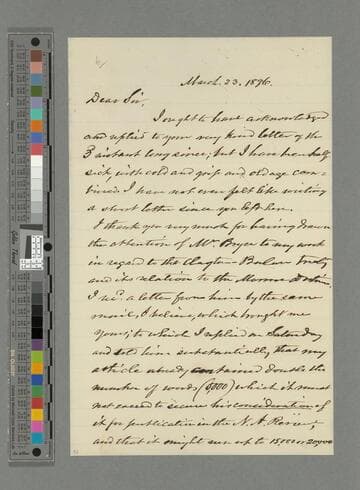 March. 23. 1896.
Dear Sir,
I ought to have acknowledged
and replied to your very kind letter of the
3 instant long since; but I have been half
sick, with cold and grip and old age com-
bined. I have not even felt like writing
a short letter since you left here.
I thank you very much for having drawn
the attention of Mr Bryce to my work
in regard to the Clayton-Bulwer Treaty
and its relation to the Monroe Doctrine.
I recd. a letter from him by the same
mail, I believe, which brought me
yours; to which I replied on Saturday
and told him substantially, that my
article already contained double the
number of words, (9,000) which it must
not exceed to secure his consideration of
it for publication in the N. A. Review,
and that it might run up to 15000 or 20,000